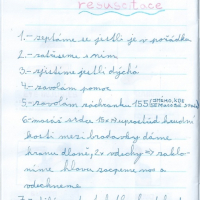 resuscitace
1.- zeptáme se jestli je v pořádku
2.- zatřeseme s ním
3.- zjistíme jestli dýchá
4.- zavolám pomoc
5.- zavolám záchranku 155
6- masáž srdce 15x uprostřed hrudní
kosti mezi bradavky dáme
hranu dlaně, 2x vdechy ⇒ zaklo-
níme hlavu zacpeme nos a
vdechneme